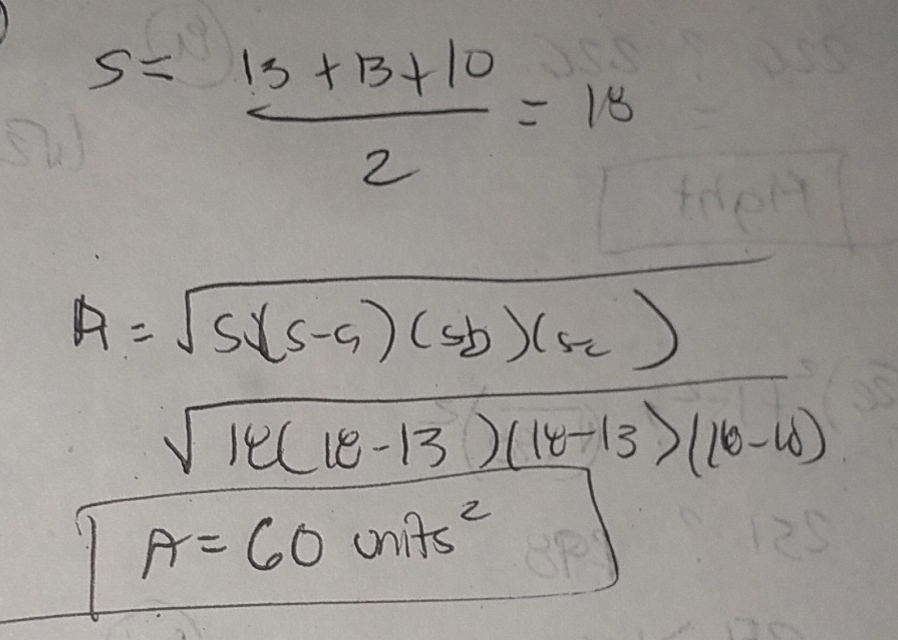 S = 13 + 13 + 10 / 2 = 18
A = √S(S-a)(sb)(sc)
√18(18-13)(18-13)(18-10)
A = 60 units²